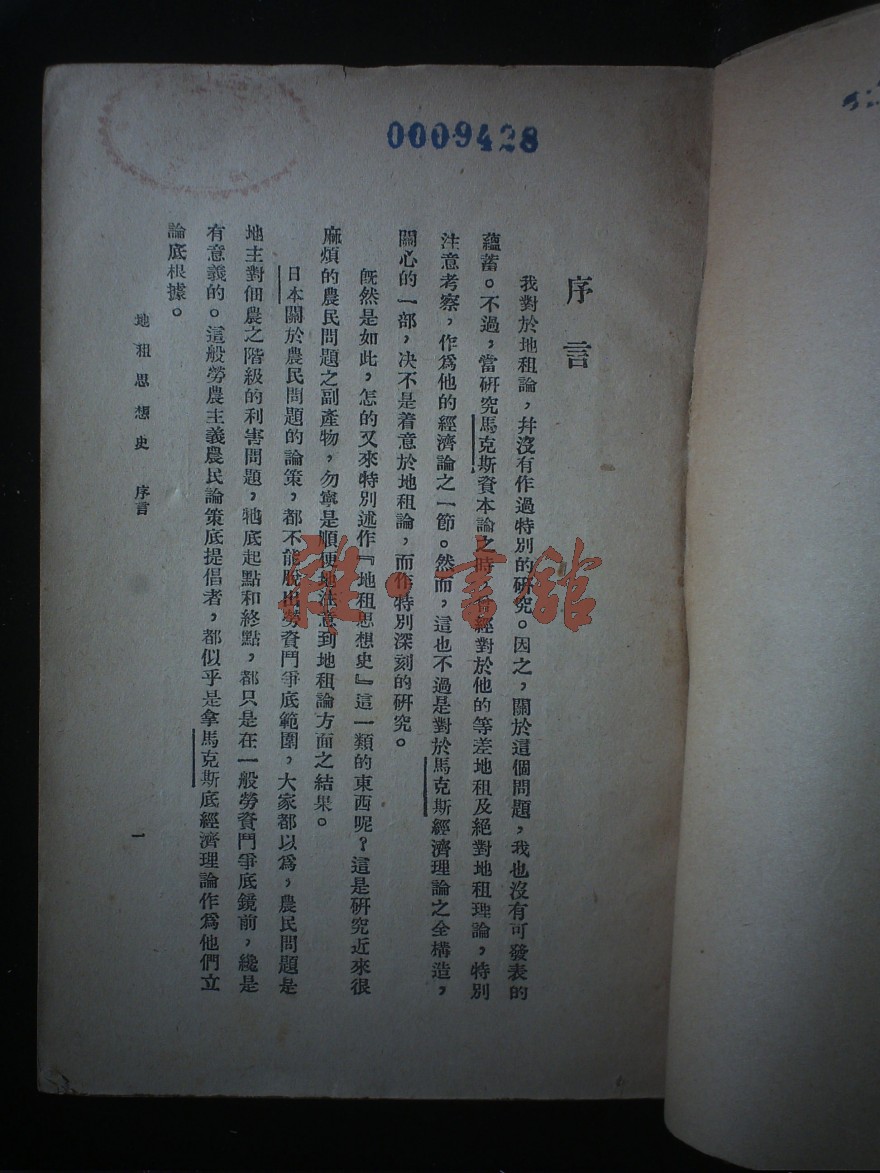 0009428
序言
我對於地租論，幷沒有作過特別的研究。因之，關於這個問題，我也沒有可發表的
蘊蓄。不過，當研究馬克斯資本論之時，曾經對於他的等差地租及絕對地租理論，特別
注意考察，作爲他的經濟論之一節。然而，這也不過是對於馬克斯經濟理論之全構造，
關心的一部，决不是着意於地租論，而作特別深刻的研究。
旣然是如此，怎的又來特別述作『地租思想史』這一類的東西呢？這是研究近來很
麻煩的農民問題之副產物，勿寧是順便地注意到地租論方面之結果。
日本關於農民問題的論策，都不能脫出勞資鬥爭底範圍，大家都以爲，農民問題是
地主對佃農之階級的利害問題，牠底起點和終點，都只是在一般勞資鬥爭底鏡前，纔是
有意義的。這般勞農主義農民論策底提倡者，都似乎是拿馬克斯底經濟理論作爲他們立
論底根據。
地租思想史 序言
一
雜·書館